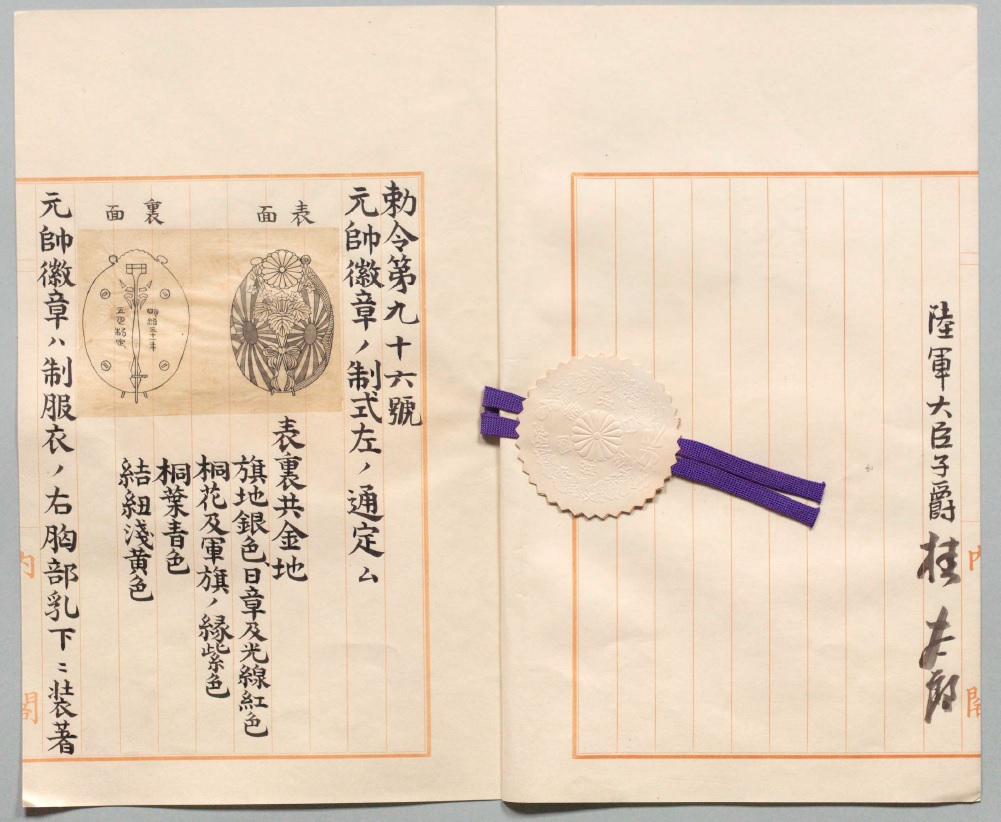 陸軍大臣子爵桂太郎
勅令第九十六號
元帥徽章ノ制式左ノ通定ム
表面
裏面
表裏共金地
旗地銀色、日章及光線紅色
桐花及軍旗ノ縁紫色
桐葉青色
結紐淺黄色
元帥徽章ハ制服衣ノ右胸部乳下ニ装著
内閣